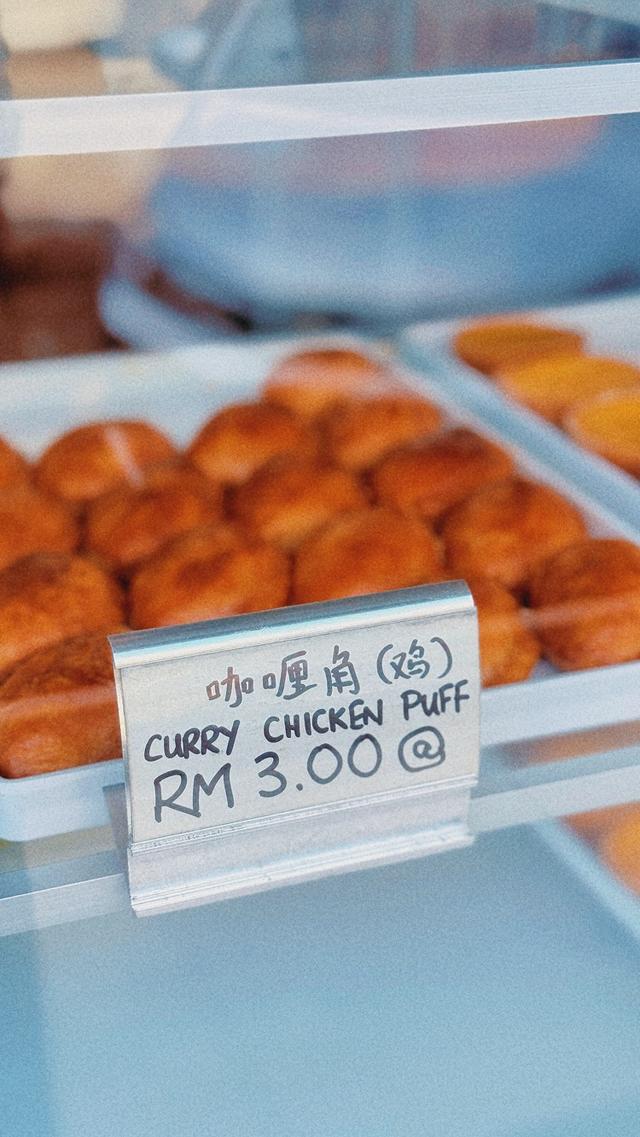 咖喱角(鸡)
CURRY CHICKEN PUFF
RM 3.00 @